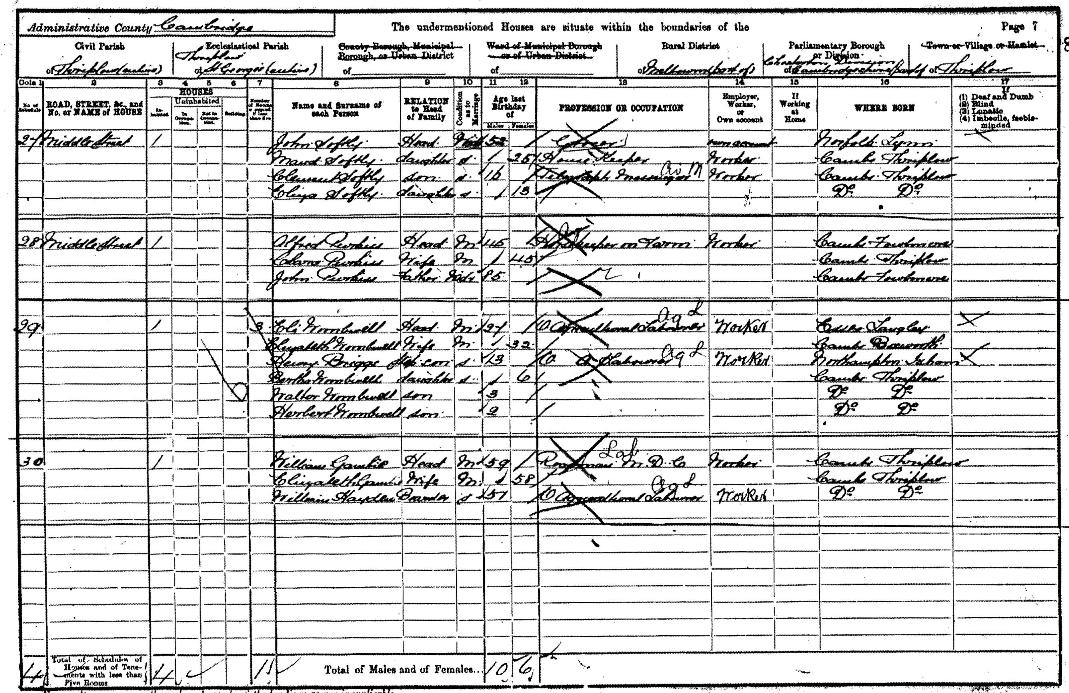 Administrative County Cambridge The undermentioned Houses are situate within the boundaries of the Page 7
Civil Parish Ecclesiastical Parish County Borough, Municipal Borough, or Urban District Ward of Municipal Borough or of Urban District Rural District Parliamentary Borough or Division Town or Village or Hamlet
of Thriplow (entire) Thriplow of St George (entire) of of of Melbourn (part of) Chesterton Division of Cambridgeshire (part) of Thriplow
Cols 1 2 3 4 5 6 7 8 9 10 11 12 13 14 15 16 17
No. of Schedule ROAD, STREET, &c., and No. or NAME of HOUSE HOUSES Inhabited Uninhabited In Occupation Not in Occupation Building Name and Surname of each Person RELATION to Head of Family Condition as to Marriage Age last Birthday of Males Females PROFESSION OR OCCUPATION Employer, Worker, or Own account If Working at Home WHERE BORN (1) Deaf and Dumb (2) Blind (3) Lunatic (4) Imbecile, feeble-minded
27 Middle Street 1 John Softly Head 52 own account Norfolk Lynn
Maud Softly daughter s 25 House Keeper Worker Cambs Thriplow
Clement Softly son s 16 Telegraph Messenger Worker Cambs Thriplow
Eliza Softly daughter s 13 Do Do
28 Middle Street 1 Alfred Perkiss Head M 45 on Farm Worker Cambs Fowlmere
Perkiss Wife M 45 Cambs Thriplow
John Perkiss Father 85 Cambs Fowlmere
29 1 3 Eli Wombwell Head M 37 Agricultural Labourer Ag L Worker Essex Langley
Elizabeth Wombwell Wife M 32 Cambs Boxworth
Henry Briggs Step son s 13 Labourer Ag L Worker Northampton
Bertha Wombwell daughter s 6 Cambs Thriplow
Walter Wombwell son 3 Do Do
Herbert Wombwell son Do Do
30 1 William Gamble Head M 59 Roadman R.D.C Lab Worker Cambs Thriplow
Elizabeth Gamble Wife M 58 Cambs Thriplow
William Boarder s 57 Agricultural Labourer Ag L Worker Do Do
4 Total of Schedules of Houses and of Tenements with less than Five Rooms 4 1 Total of Males and of Females... 10 6